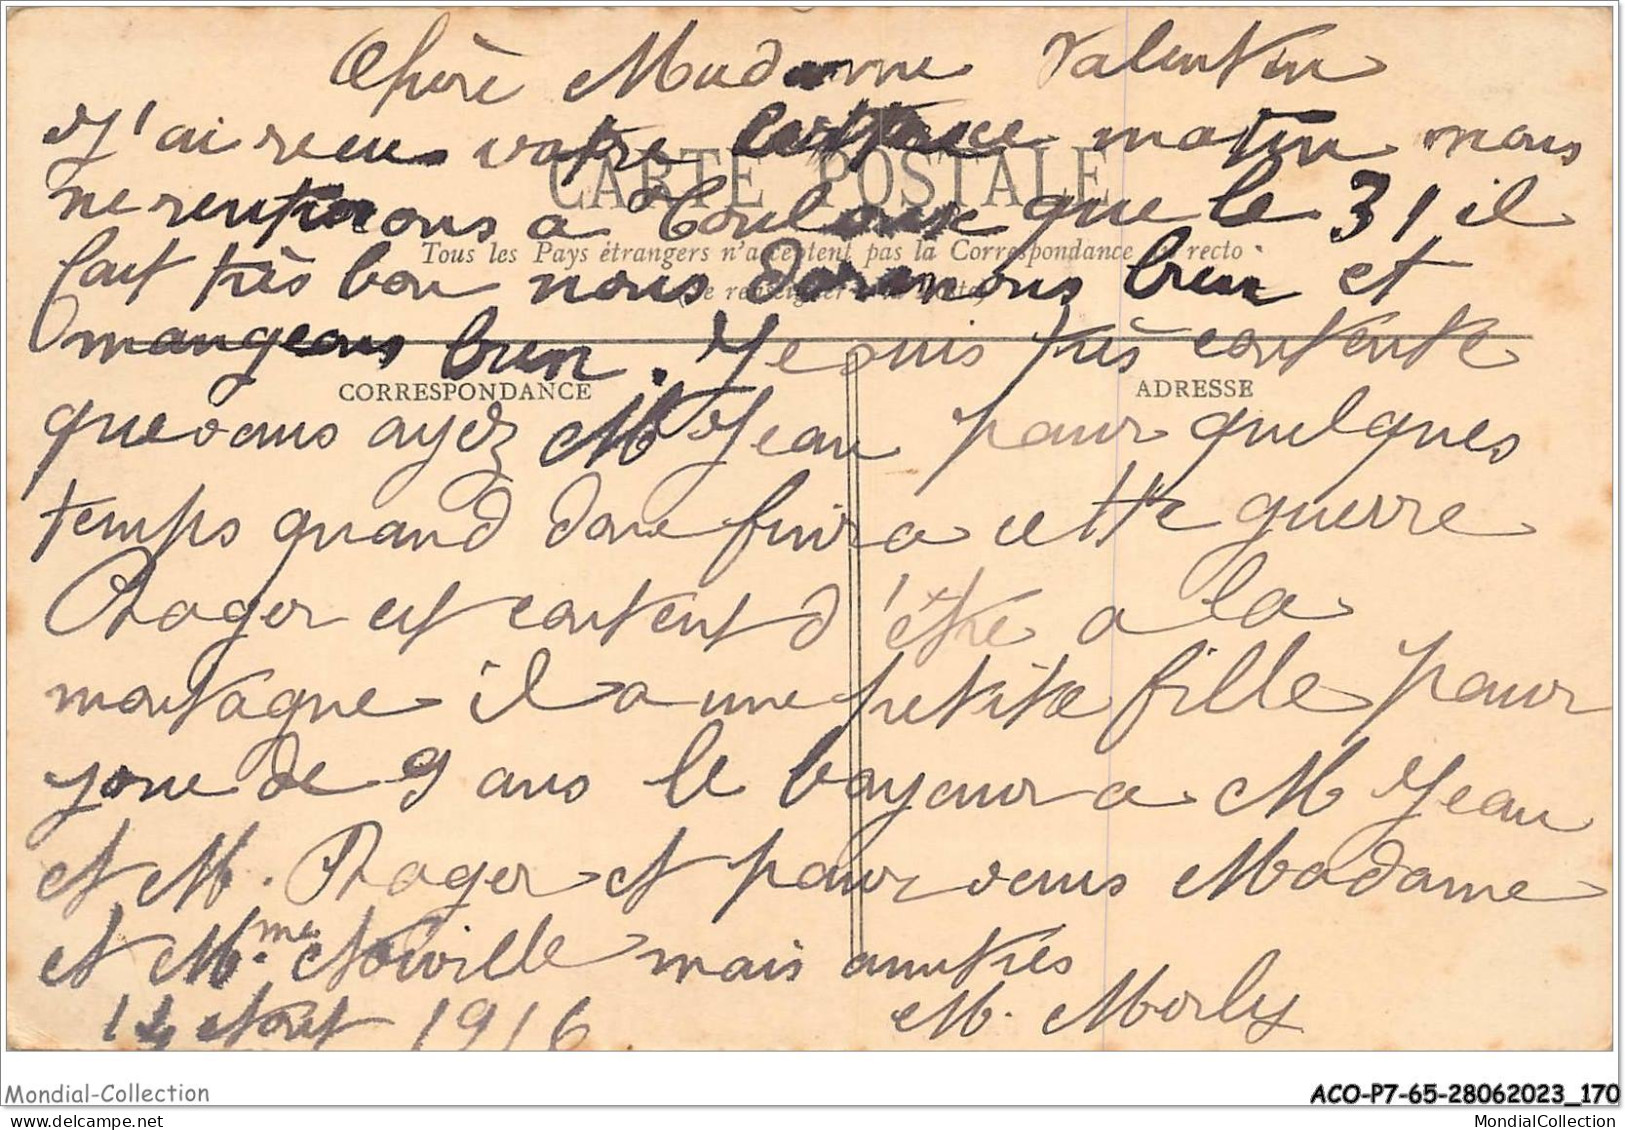 Chère Madame Valentin
J'ai recu votre lettre ce matin nous
CARTE POSTALE
ne rentrerons a Toulouse que le 31 il
Tous les Pays étrangers n'acceptent pas la Correspondance au recto
fait très bon nous dormons bien et
mangeons bien. Je suis très contente
CORRESPONDANCE
ADRESSE
que vous ayez Mr Jean pour quelques
temps quand donc finira cette guerre
Roger est content d'être a la
montagne il a une petite fille pour
joue de 9 ans le bonjour a M Jean
et M. Roger et pour vous Madame
et M.me mais amitiés
14 Aout 1916 M. Morly
Mondial-Collection
ACO-P7-65-28062023_170
MondialCollection